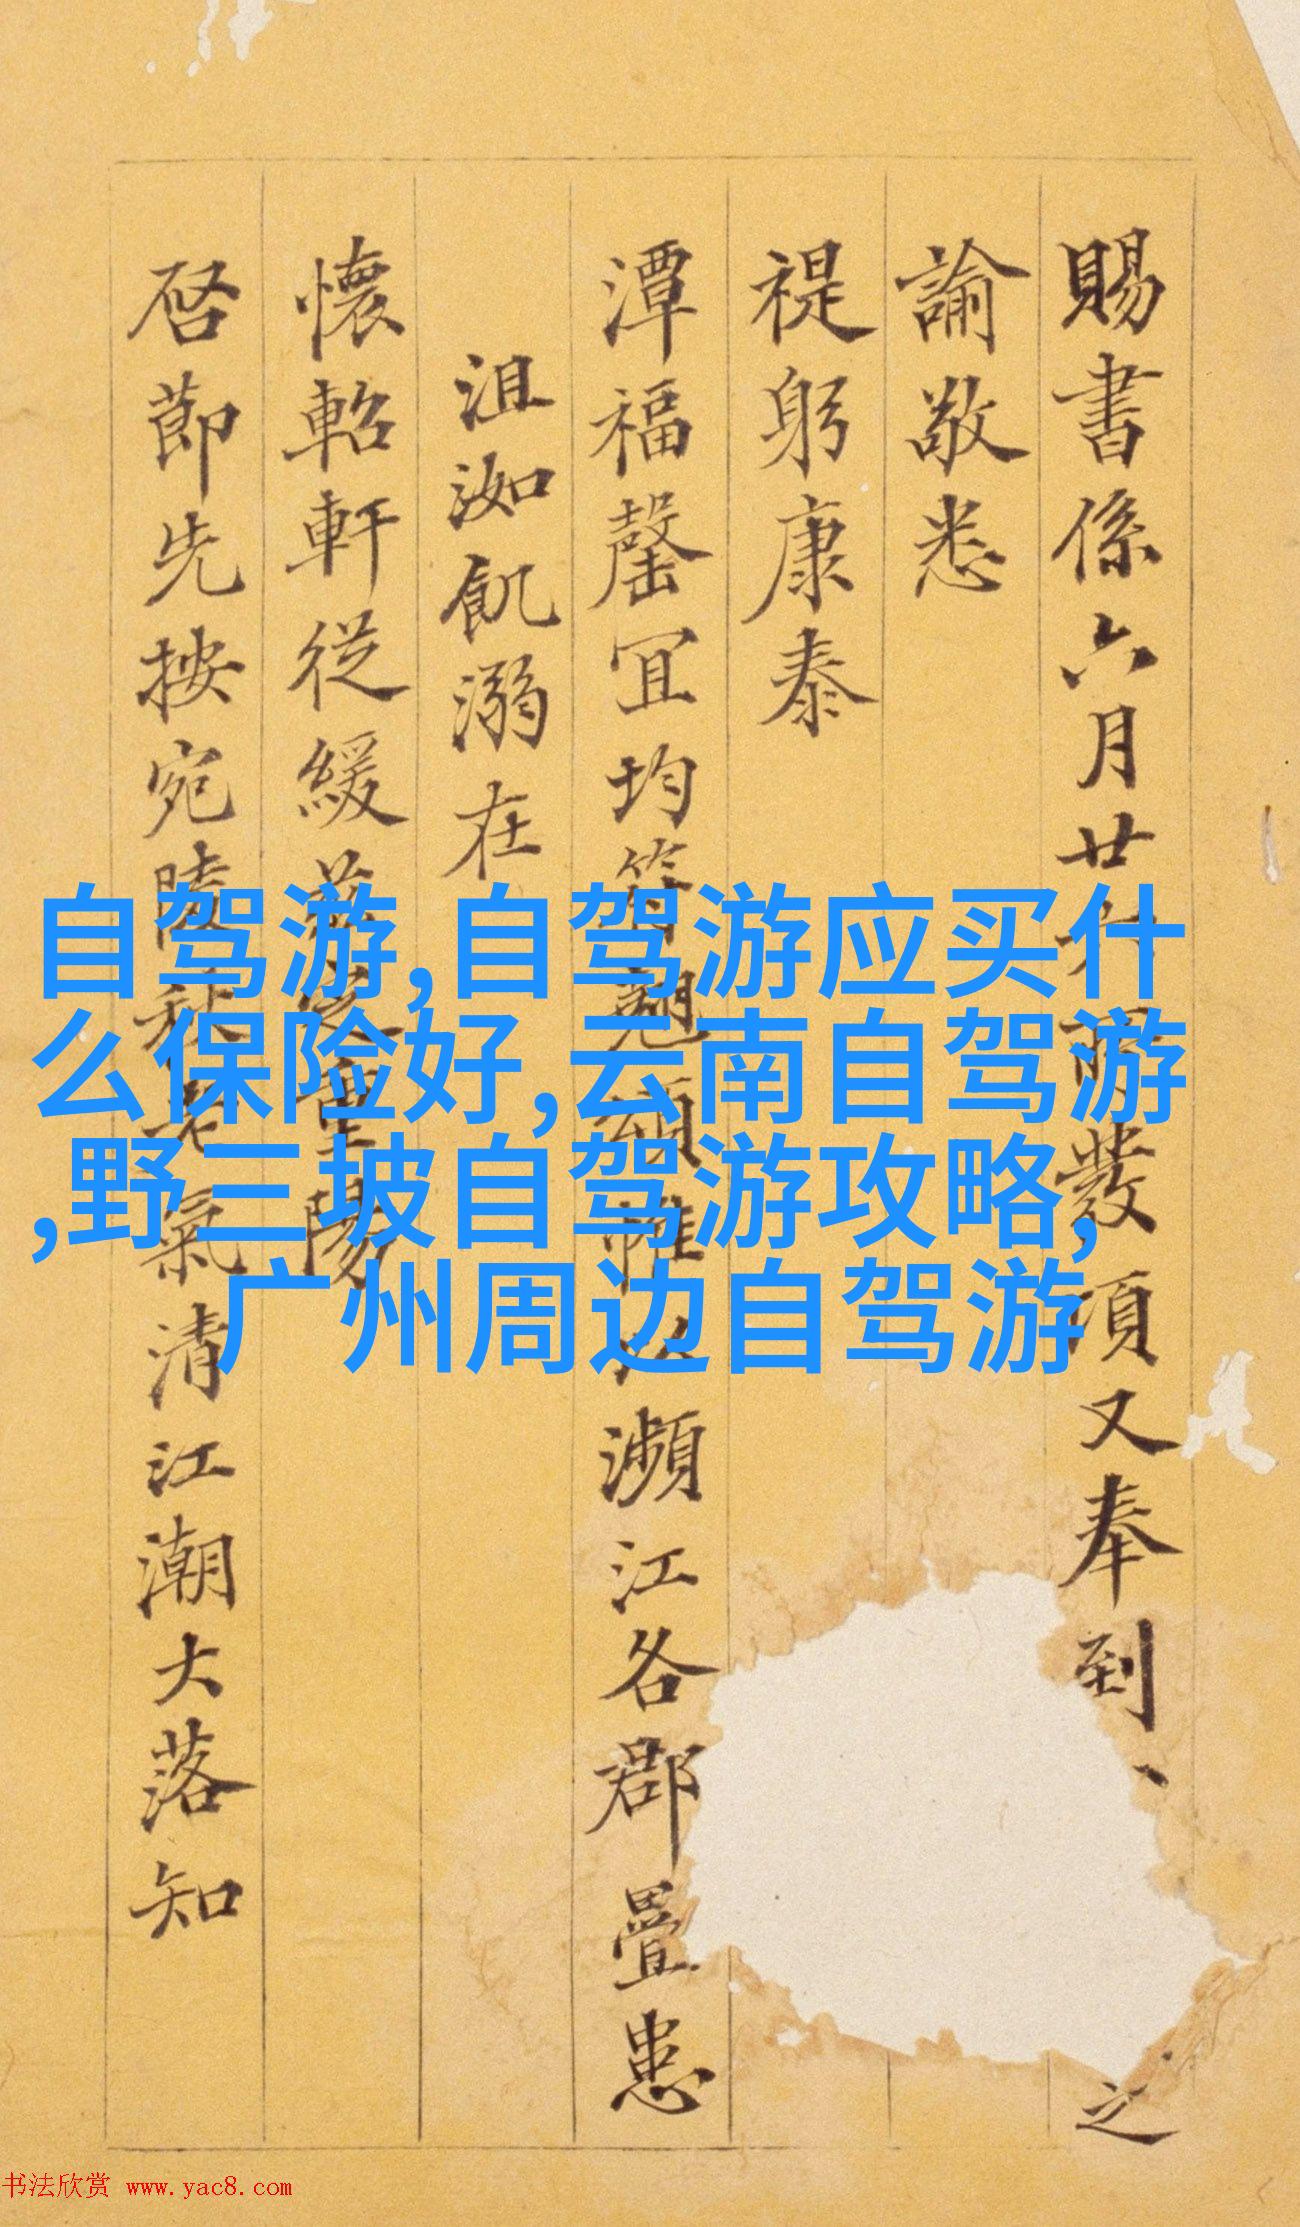 賜書係六月廿
發項又奉到
之
諭敬悉
禔躬康泰
潭福罄宜均
瀕江各郡疊患
沮洳飢溺在
懷軺軒從緩
陽
启節先按宛陵秋
氣清江潮大落知
自驾游,自驾游应买什
么保险好,云南自驾游
,野三坡自驾游攻略,
广州周边自驾游
书法欣赏 www.yac8.com